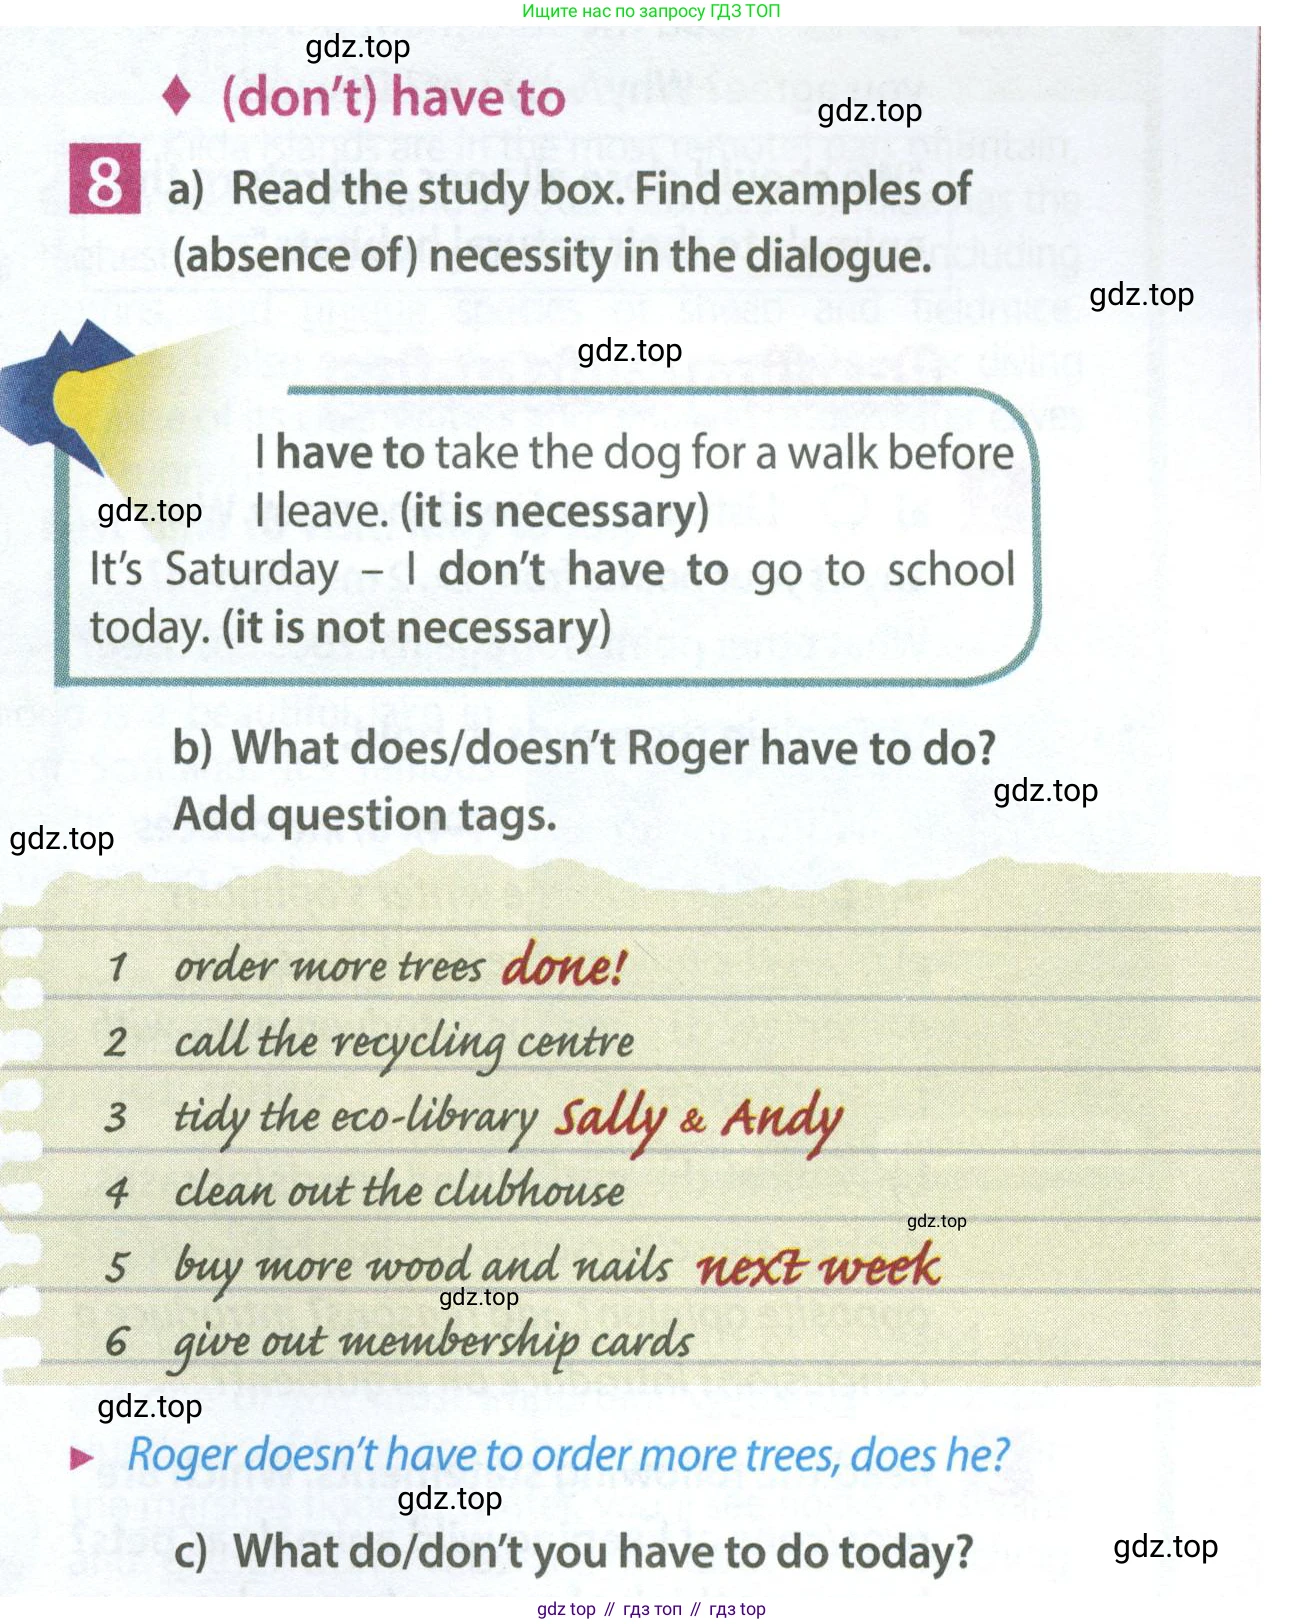 Ищите нас по запросу ГДЗ ТОП
gdz.top
♦ (don't) have to
gdz.top
8 a) Read the study box. Find examples of
(absence of) necessity in the dialogue.
gdz.top
gdz.top
I have to take the dog for a walk before
I leave. (it is necessary)
gdz.top
It's Saturday – I don't have to go to school
today. (it is not necessary)
b) What does/doesn't Roger have to do?
gdz.top
Add question tags.
gdz.top
1 order more trees done!
2 call the recycling centre
3 tidy the eco-library Sally & Andy
4 clean out the clubhouse
gdz.top
5 buy more wood and nails next week
gdz.top
6 give out membership cards
gdz.top
► Roger doesn't have to order more trees, does he?
gdz.top
c) What do/don't you have to do today?
gdz.top
gdz top // гдз топ // гдз top